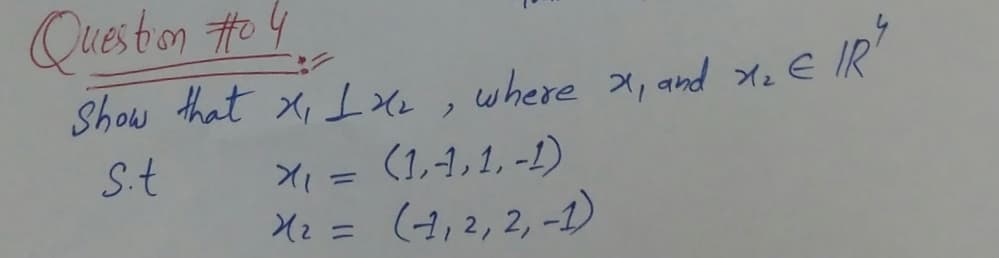 Question #04
Show that x₁ ⊥ x₂, where x₁ and x₂ ∈ ℝ⁴
S.t x₁ = (1,-1,1,-1)
x₂ = (-1,2,2,-1)